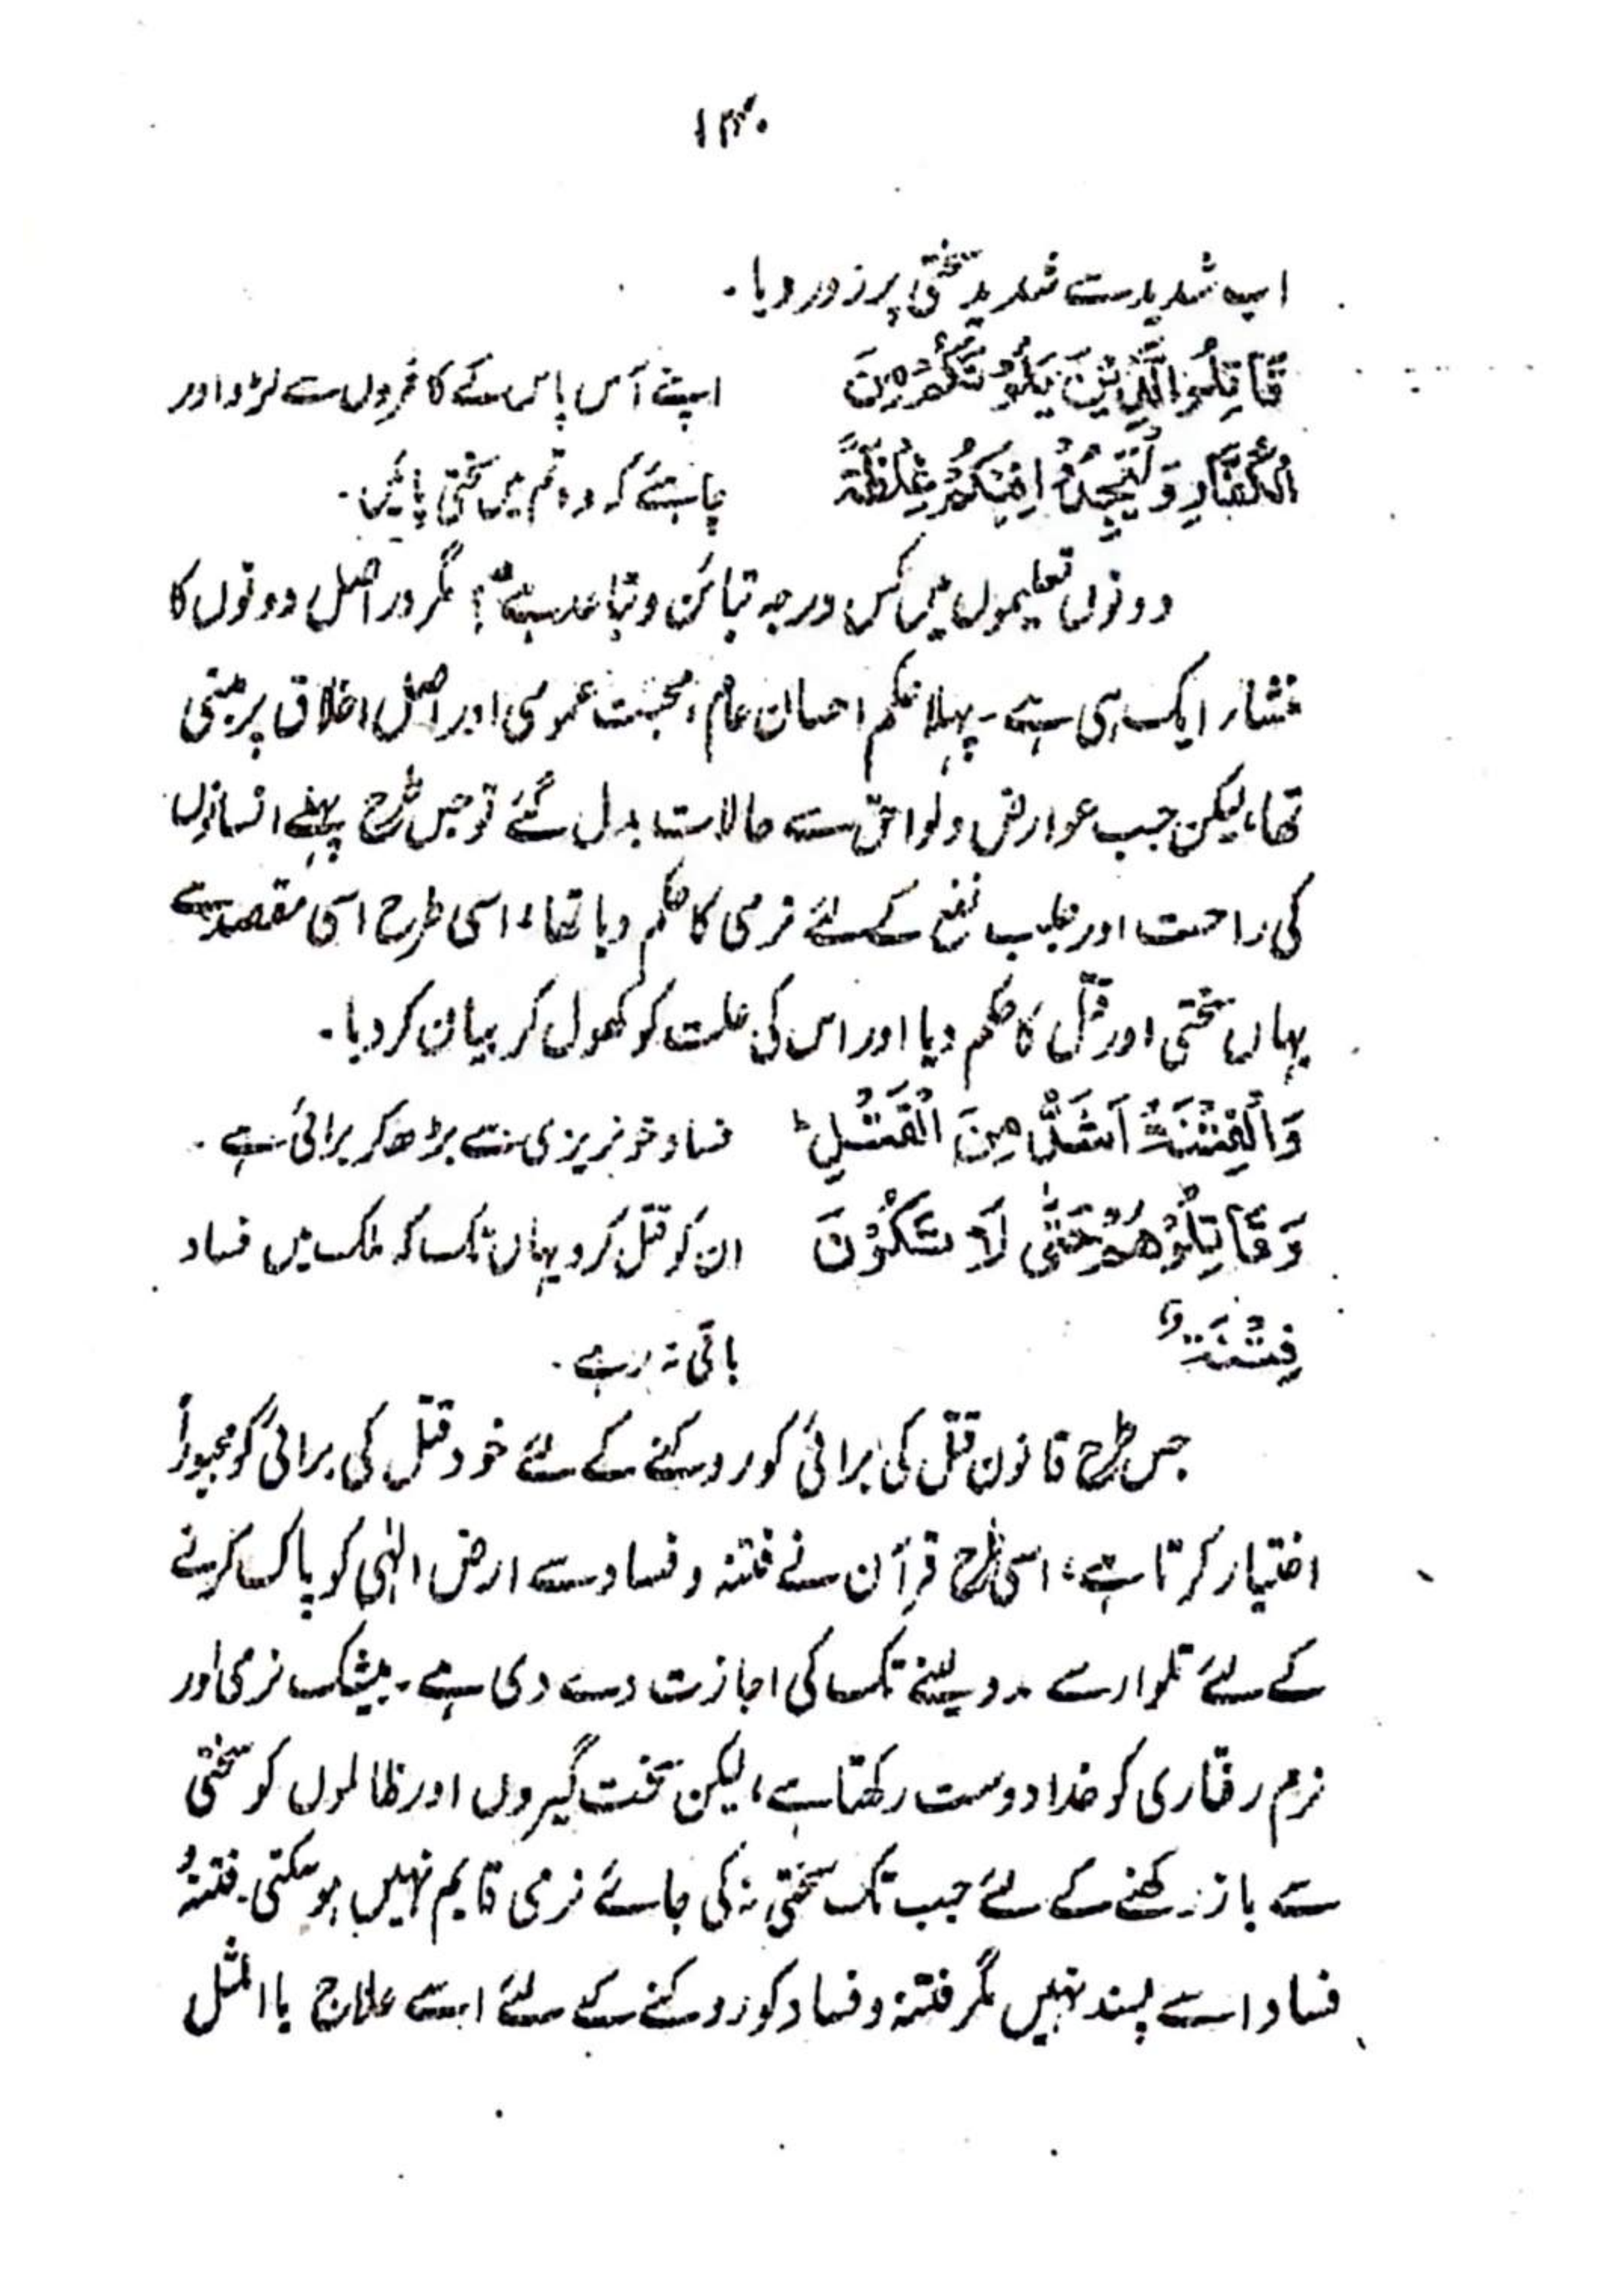 ۱۳۰
اب شدید سے شدید سختی پر زور دیا۔
قَاتِلُوا الَّذِیْنَ یَلُوْنَکُمْ مِّنَ اپنے آس پاس کے کافروں سے لڑو اور
الْکُفَّارِ وَلْیَجِدُوْا فِیْکُمْ غِلْظَۃً چاہئے کہ وہ تم میں سختی پائیں۔
دونوں تعلیموں میں کس درجہ تبائن و تباعد ہے؟ مگر دراصل دونوں کا
منشار ایک ہی ہے۔ پہلا حکم احسان عام، محبت عمومی اور اصل اخلاق پر مبنی
تھا، لیکن جب عوارض ولواحق سے حالات بدل گئے تو جس طرح پہلے انسانوں
کی راحت اور جلب نفع کے لئے نرمی کا حکم دیا تھا، اسی طرح اسی مقصد سے
یہاں سختی اور قتل کا حکم دیا اور اس کی علت کو کھول کر بیان کر دیا۔
وَالْفِتْنَۃُ اَشَدُّ مِنَ الْقَتْلِ ؕ فساد خونریزی سے بڑھ کر برائی ہے۔
وَقَاتِلُوْھُمْ حَتّٰی لَا تَکُوْنَ ان کو قتل کرو یہاں تک کہ ملک میں فساد
فِتْنَۃٌ باقی نہ رہے۔
جس طرح قانون قتل کی برائی کو روکنے کے لئے خود قتل کی برائی کو مجبوراً
اختیار کرتا ہے، اسی طرح قرآن نے فتنہ و فساد سے ارض الٰہی کو پاک کرنے
کے لئے تلوار سے مدد لینے تک کی اجازت دے دی ہے۔ بیشک نرمی اور
نرم رفتاری کو خدا دوست رکھتا ہے، لیکن سخت گیروں اور ظالموں کو سختی
سے باز رکھنے کے لئے جب تک سختی نہ کی جائے نرمی قایم نہیں ہو سکتی۔ فتنہ و
فساد اسے پسند نہیں مگر فتنہ و فساد کو روکنے کے لئے اسے علاج باالمثل